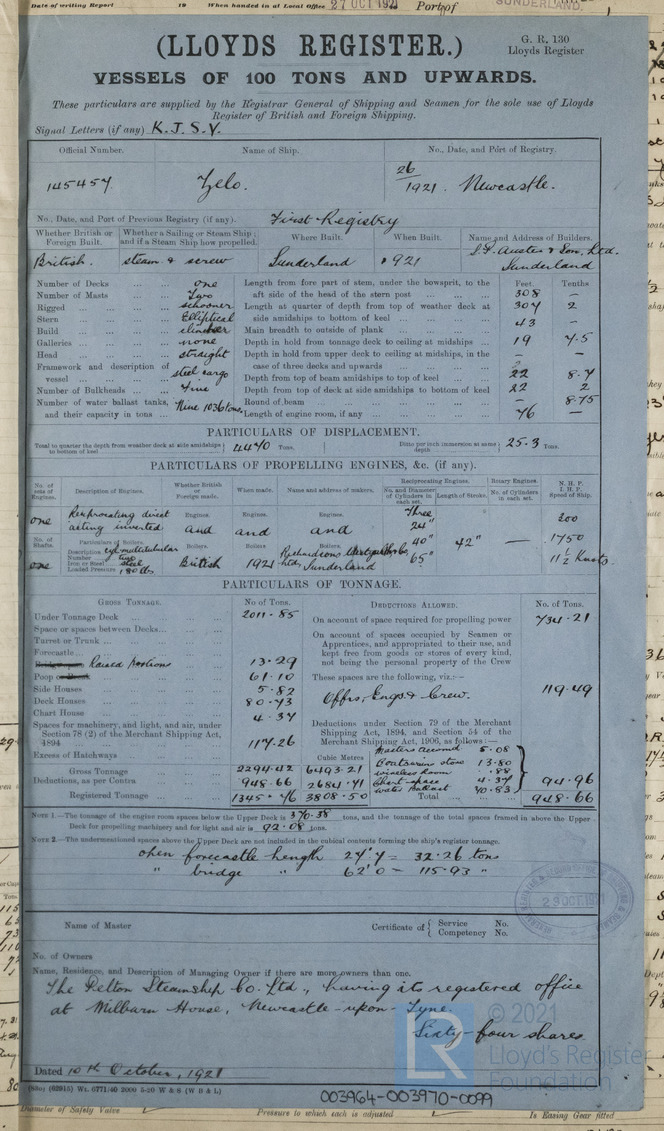 Date of writing Report 19 When handed in at Local Office 27 OCT 1921 Port of SUNDERLAND.
(LLOYDS REGISTER.)
G. R. 130
Lloyds Register
VESSELS OF 100 TONS AND UPWARDS.
These particulars are supplied by the Registrar General of Shipping and Seamen for the sole use of Lloyds
Register of British and Foreign Shipping.
Signal Letters (if any) K.J.S.V.
Official Number. Name of Ship. No., Date, and Port of Registry.
145457 Zelo. 26/1921. Newcastle.
No., Date, and Port of Previous Registry (if any). First Registry
Whether British or Foreign Built. Whether a Sailing or Steam Ship; and if a Steam Ship how propelled. Where Built. When Built. Name and Address of Builders.
British. steam & screw Sunderland 1921 S.P. Austin & Son, Ltd. Sunderland
Number of Decks one Length from fore part of stem, under the bowsprit, to the Feet. Tenths
Number of Masts Two aft side of the head of the stern post 308 —
Rigged schooner Length at quarter of depth from top of weather deck at 304 2
Stern Elliptical side amidships to bottom of keel
Build clincher Main breadth to outside of plank 43 —
Galleries none Depth in hold from tonnage deck to ceiling at midships 19 7.5
Head straight Depth in hold from upper deck to ceiling at midships, in the — —
Framework and description of vessel steel cargo case of three decks and upwards
Depth from top of beam amidships to top of keel 22 8.7
Number of Bulkheads Five Depth from top of deck at side amidships to bottom of keel 22 2
Number of water ballast tanks, Nine 1036 tons Round of beam — 8.75
and their capacity in tons Length of engine room, if any 76 —
PARTICULARS OF DISPLACEMENT.
Total to quarter the depth from weather deck at side amidships to bottom of keel 4470 Tons. Ditto per inch immersion at same depth 25.3 Tons.
PARTICULARS OF PROPELLING ENGINES, &c. (if any).
No. of sets of Engines. Description of Engines. Whether British or Foreign made. When made. Name and address of makers. Reciprocating Engines. No. and Diameter of Cylinders in each set. Length of Stroke. Rotary Engines. No. of Cylinders in each set. N.H.P. I.H.P. Speed of Ship.
one Reciprocating direct acting inverted Engines. and Engines. and Engines. and Three 24" 40" 65" 42" — 200
No. of Shafts. Particulars of Boilers. Boilers. Boilers. Boilers. 1750
one Description cyl multitubular Number two Iron or Steel steel Loaded Pressure 180 lbs British 1921 Sunderland 11½ Knots
PARTICULARS OF TONNAGE.
GROSS TONNAGE. No. of Tons. DEDUCTIONS ALLOWED. No. of Tons.
Under Tonnage Deck 2011.85 On account of space required for propelling power 734.21
Space or spaces between Decks On account of spaces occupied by Seamen or
Turret or Trunk Apprentices, and appropriated to their use, and
Forecastle kept free from goods or stores of every kind,
Raised Portions 13.29 not being the personal property of the Crew
Poop 61.10 These spaces are the following, viz.:—
Side Houses 5.82 Offrs, Engs & Crew. 119.49
Deck Houses 80.73
Chart House 4.37
Spaces for machinery, and light, and air, under Section 78 (2) of the Merchant Shipping Act, 1894 117.26 Deductions under Section 79 of the Merchant Shipping Act, 1894, and Section 54 of the Merchant Shipping Act, 1906, as follows:—
Excess of Hatchways Cubic Metres Masters accomd 5.08
Gross Tonnage 2294.42 6493.21 Boatswains store 13.80
wireless room .88
Deductions, as per Contra 948.66 2684.71 Chart-space 4.37 94.96
water Ballast 70.83
Registered Tonnage 1345.76 3808.50 Total 948.66
NOTE 1.—The tonnage of the engine room spaces below the Upper Deck is 370.38 tons, and the tonnage of the total spaces framed in above the Upper
Deck for propelling machinery and for light and air is 92.08 tons.
NOTE 2.—The undermentioned spaces above the Upper Deck are not included in the cubical contents forming the ship's register tonnage.
open forecastle Length 27'.7 = 32.26 tons
" bridge " 62'.0 = 115.93 "
Name of Master Certificate of { Service No. Competency No.
No. of Owners
Name, Residence, and Description of Managing Owner if there are more owners than one.
The Pelton Steamship Co. Ltd., having its registered office
at Milburn House, Newcastle-upon-Tyne
Sixty-four shares.
© 2021
Lloyd's Register
Foundation
Dated 10th October, 1921
(62915) Wt. 6771/40 2000 5-20 W & S (W B & L)
003964-003970-0099
Diameter of Safety Valve Pressure to which each is adjusted Is Easing Gear fitted